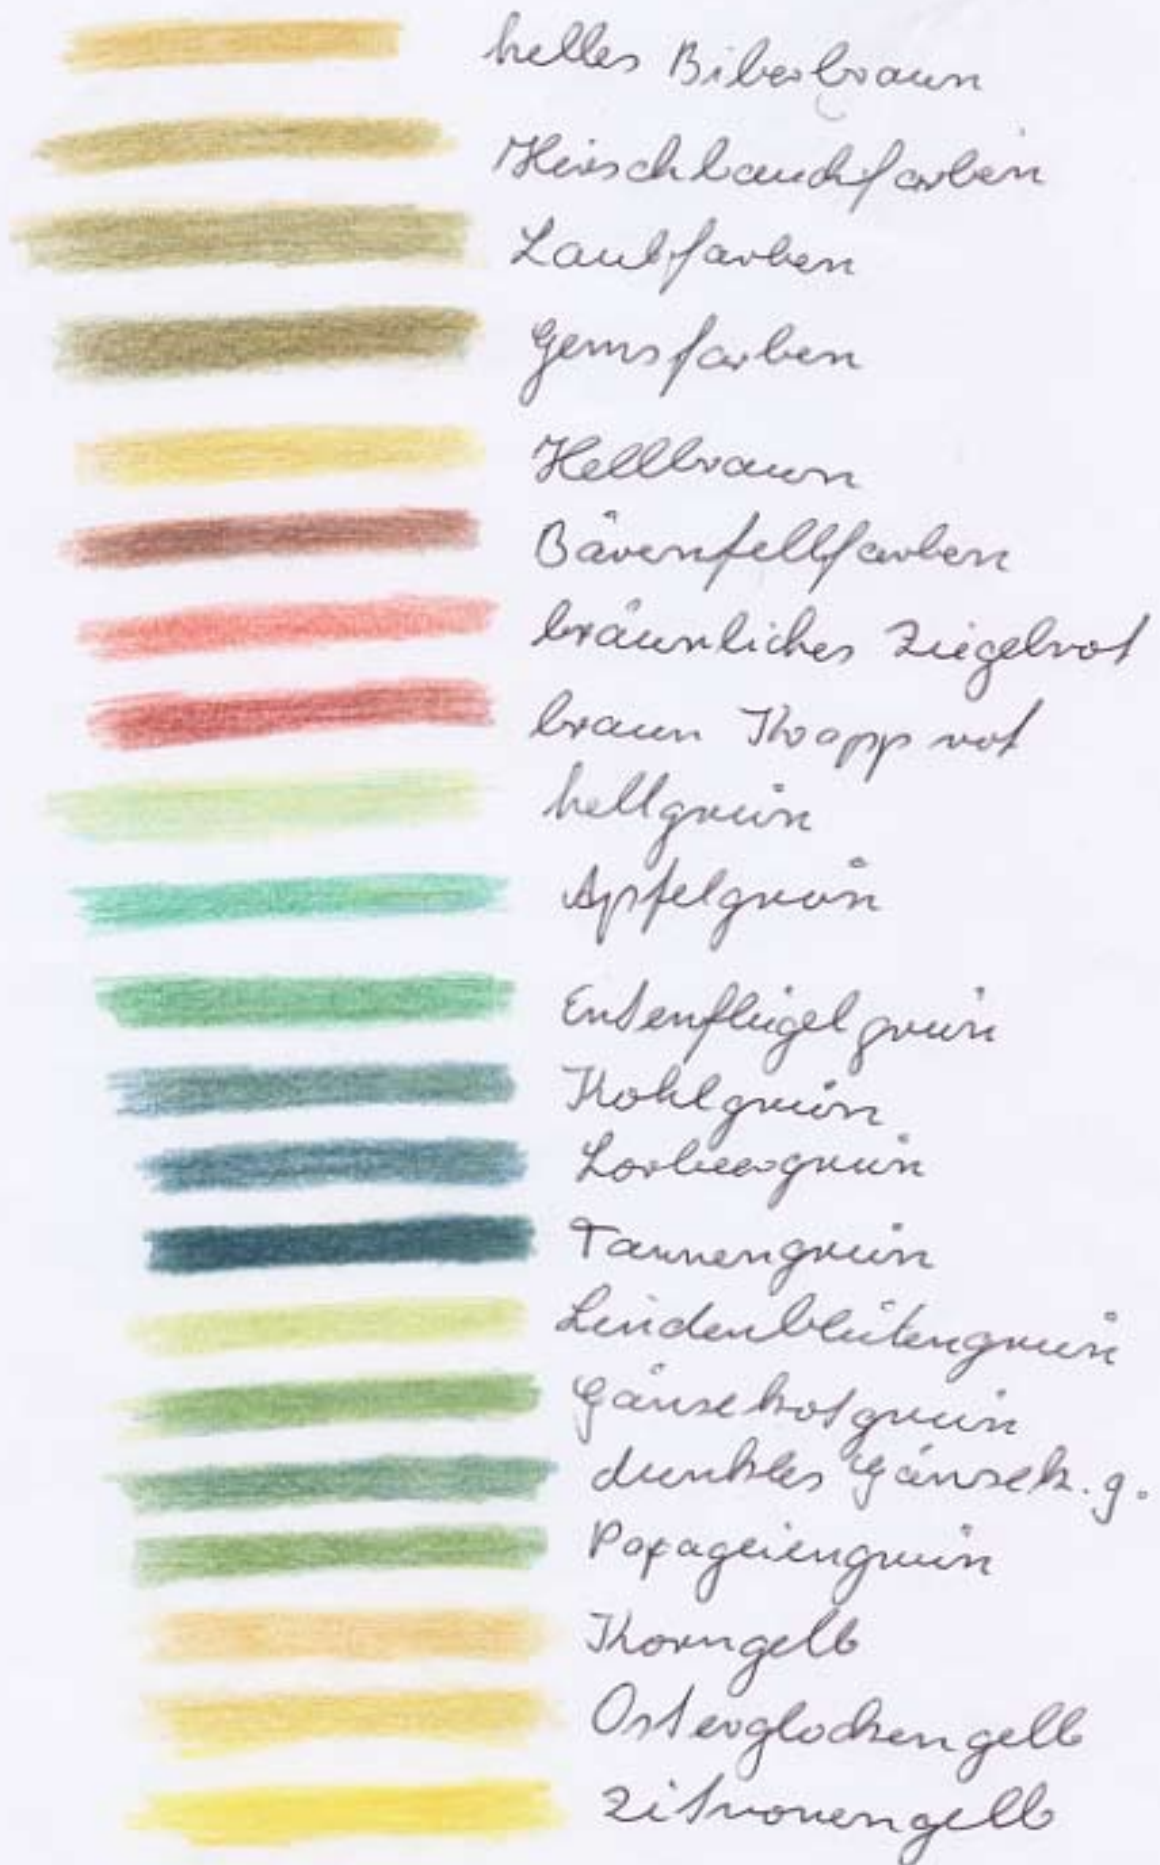 helles Biberbraun
Hirschbauchfarben
Laubfarben
Gemsfarben
Hellbraun
Bärenfellfarben
bräunliches Ziegelrot
braun Krapp rot
hellgrün
Apfelgrün
Entenflügelgrün
Kohlgrün
Lorbeergrün
Tannengrün
Lindenblütengrün
Gänsekotgrün
dunkles Gänsek. g.
Papageiengrün
Korngelb
Osterglockengelb
Zitronengelb